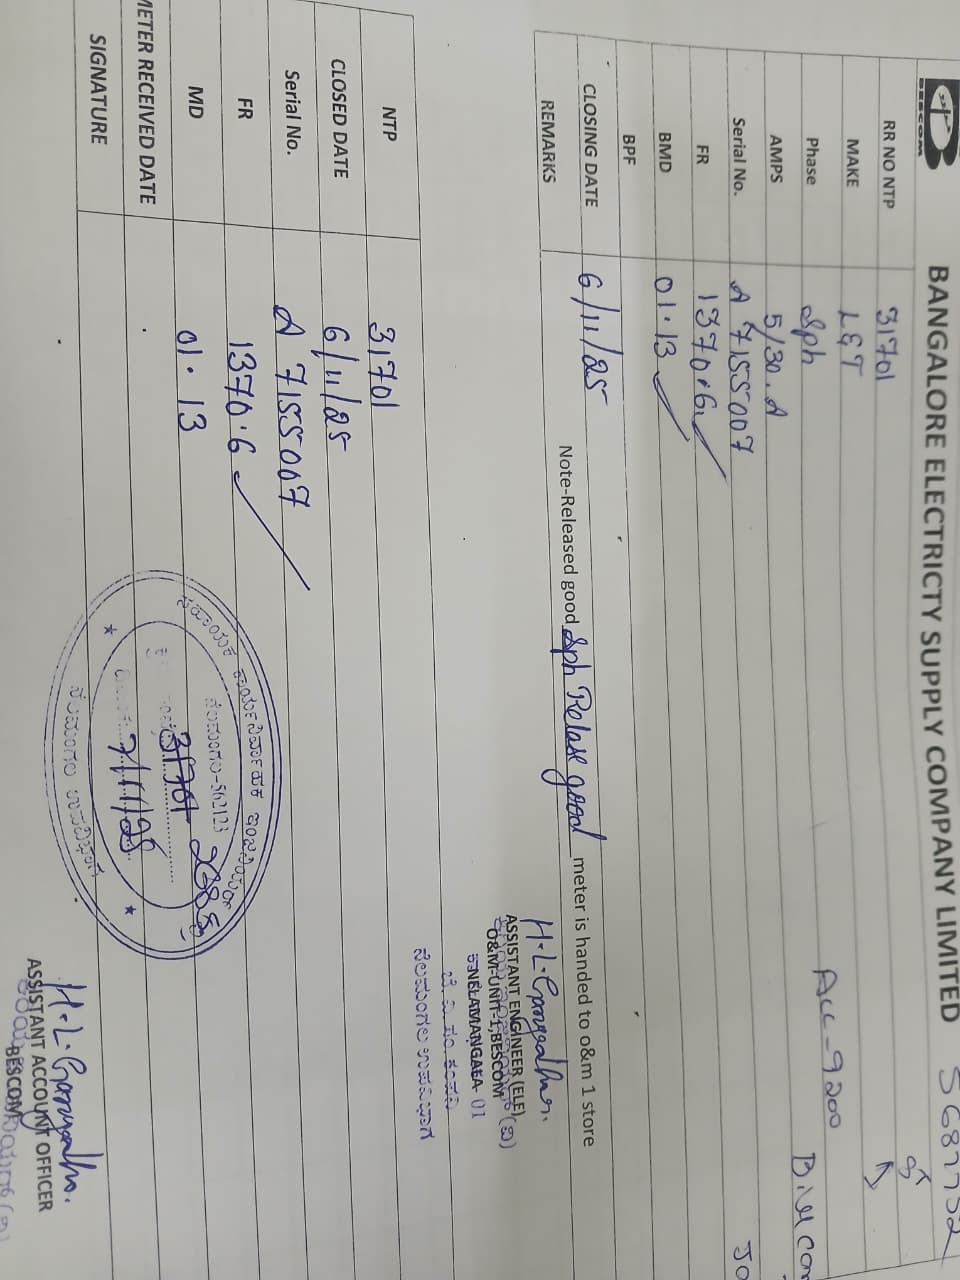 BESCOM
BANGALORE ELECTRICTY SUPPLY COMPANY LIMITED
RR NO NTP 31701
MAKE L&T
Phase Sph Acc-9200
AMPS 5/30.A
Serial No. A 7155007
FR 1370.6
BMD 01.13
BPF
CLOSING DATE 6/11/25
REMARKS
Note-Released good Sph Relase good meter is handed to o&m 1 store
H.L.Gangadhar.
ASSISTANT ENGINEER (ELE)
O&M-UNIT-1,BESCOM
NELAMANGALA
ಬೆ.ವಿ.ಸಂ.ಕಂಪನಿ
ನೆಲಮಂಗಲ ಉಪವಿಭಾಗ
NTP 31701
CLOSED DATE 6/11/25
Serial No. A 7155007
FR 1370.6
MD 01.13
METER RECEIVED DATE
SIGNATURE
ಸಹಾಯಕ ಕಾರ್ಯನಿರ್ವಾಹಕ ಇಂಜಿನಿಯರ್
ನೆಲಮಂಗಲ-562123
31701
7/11/25
ನೆಲಮಂಗಲ ಉಪವಿಭಾಗ
H.L.Gangadhar.
ASSISTANT ACCOUNT OFFICER
BESCOM